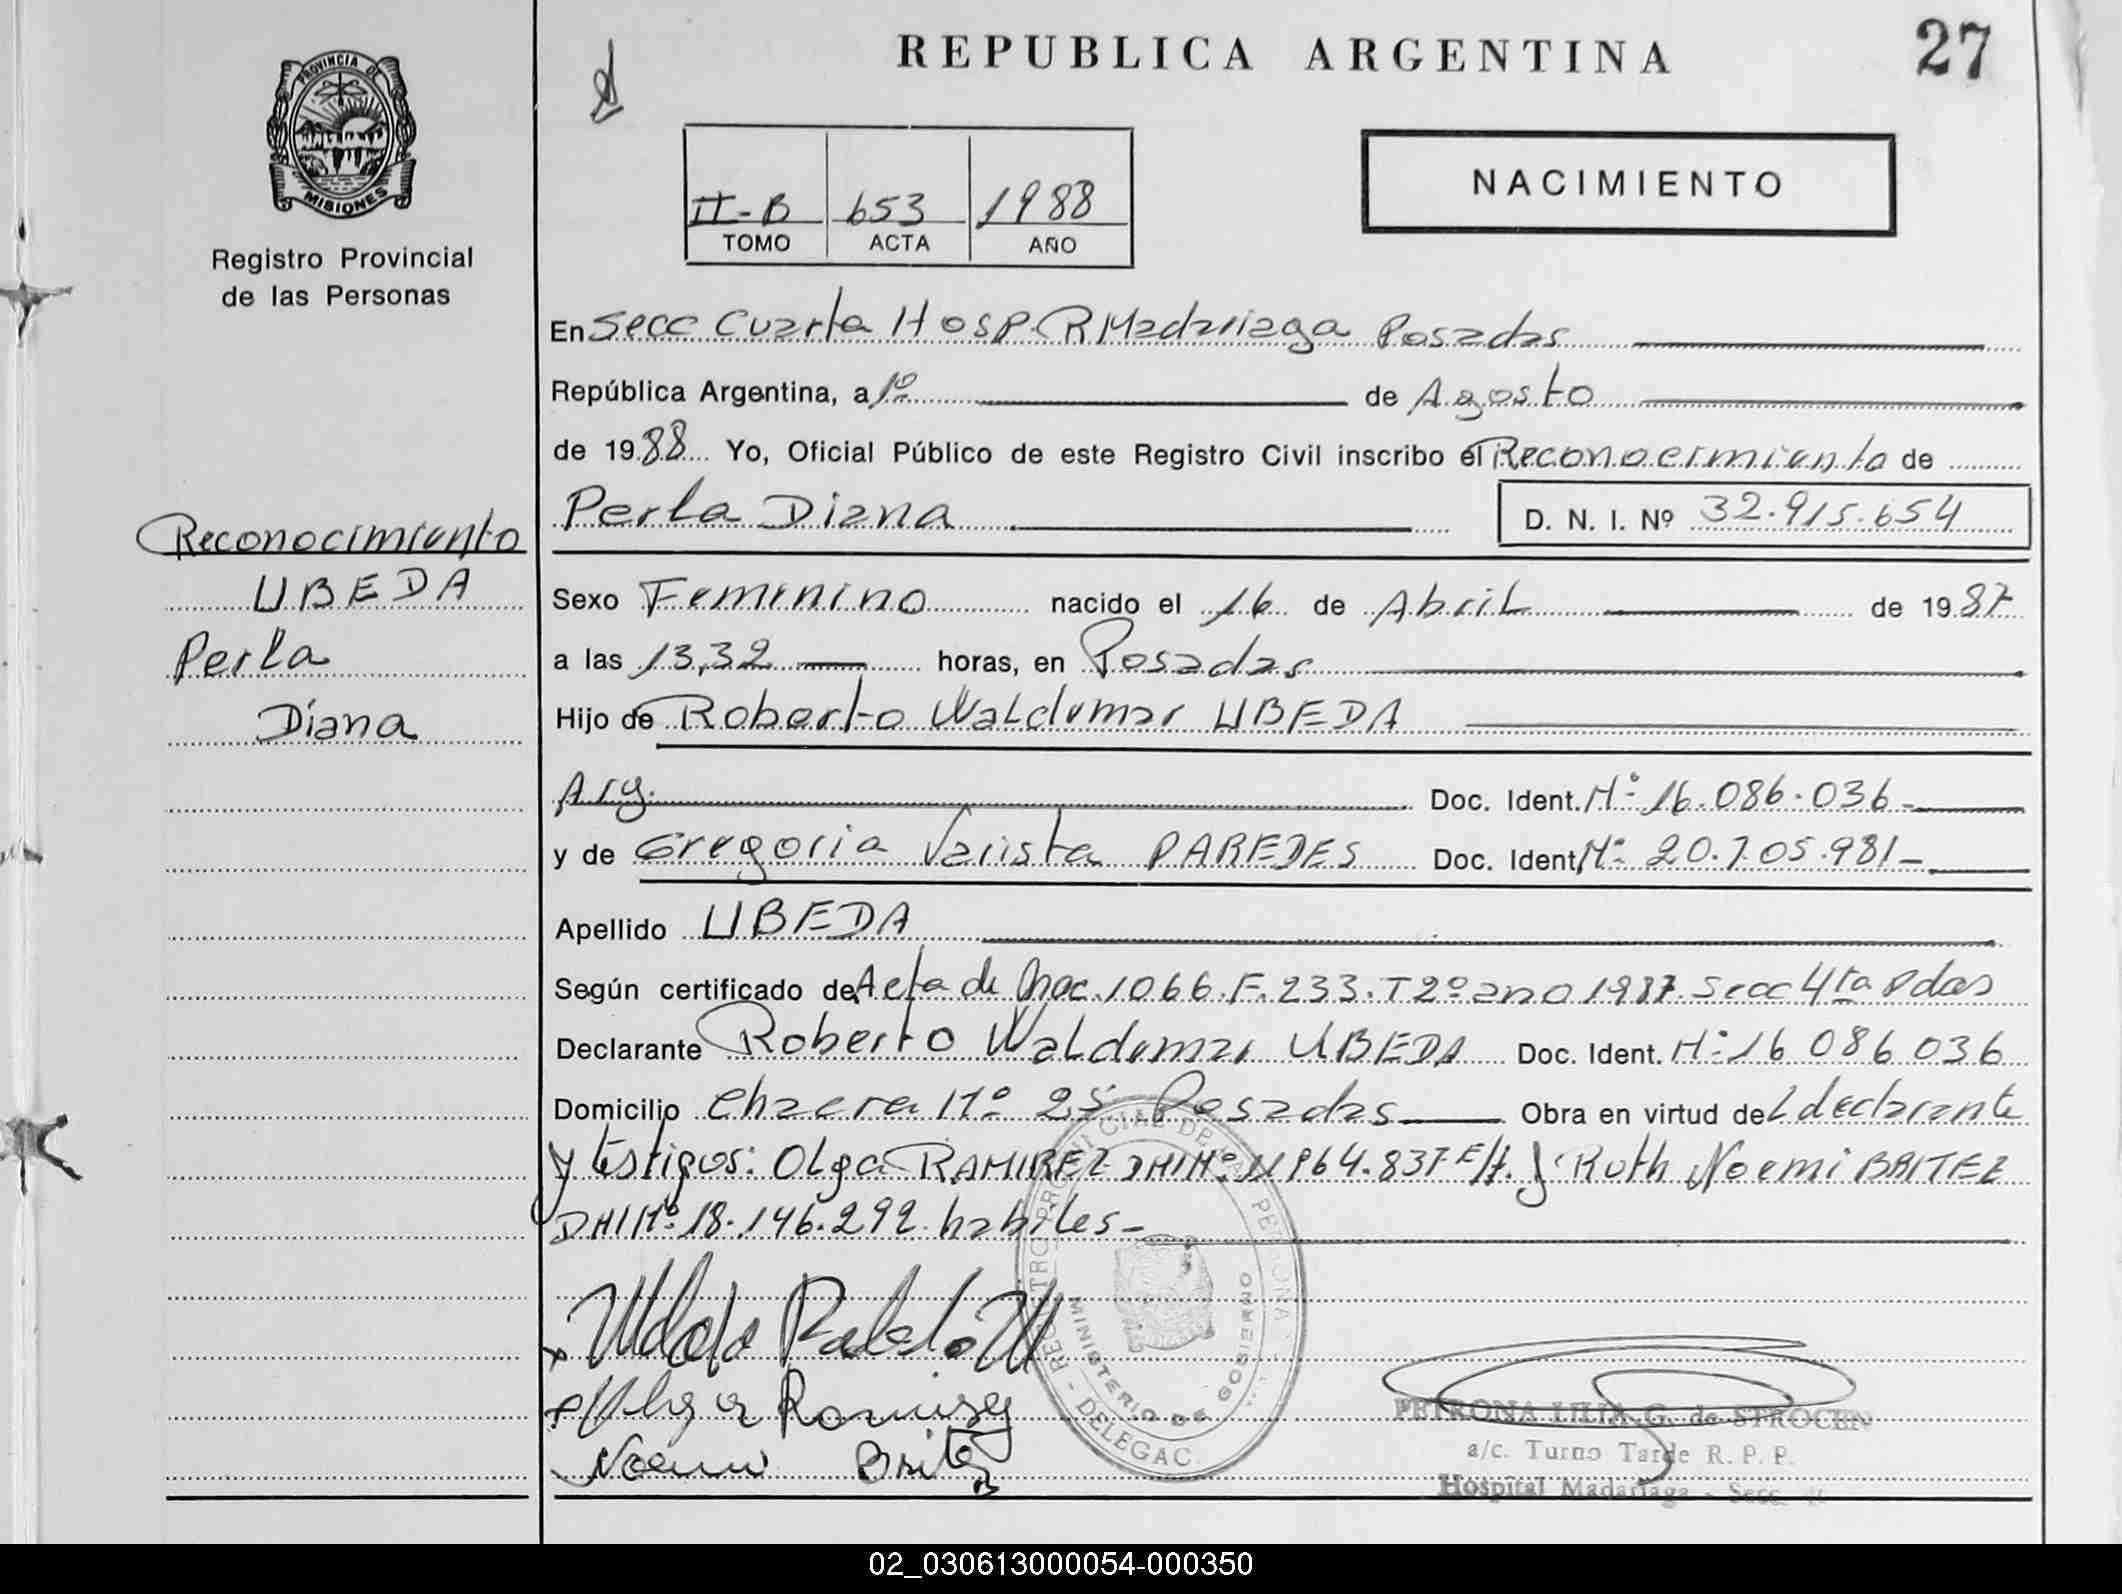 REPUBLICA ARGENTINA
27
PROVINCIA DE
MISIONES
Registro Provincial
de las Personas
II-B 653 1988
TOMO ACTA AÑO
NACIMIENTO
En Secc Cuarta Hosp. R Madariaga Posadas
República Argentina, a 1º de Agosto
de 1988 Yo, Oficial Público de este Registro Civil inscribo el Reconocimiento de
Perla Diana D. N. I. Nº 32.915.654
Reconocimiento
UBEDA
Perla
Diana
Sexo Femenino nacido el 16 de Abril de 1987
a las 13,32 horas, en Posadas
Hijo de Roberto Waldemar UBEDA
Arg. Doc. Ident. Nº 16.086.036-
y de Gregoria PAREDES Doc. Ident. Nº 20.705.981-
Apellido UBEDA
Según certificado de Acta de Nac. 1066. F. 233. T 2º año 1987. Secc 4ta Pdas
Declarante Roberto Waldemar UBEDA Doc. Ident. Nº 16 086 036
Domicilio Chacra Nº 25 Posadas Obra en virtud del declarante
y testigos: Olga RAMIREZ DNI Nº 11.964.837 F/A. y Ruth Noemi BRITEZ
DNI Nº 18.146.292 habiles-
REGISTRO PROVINCIAL DE LAS PERSONAS - DELEGAC.
MINISTERIO DE GOBIERNO
Olga Ramirez
Noemi Britez
PETRONA LILIA G. de STROCEN
a/c. Turno Tarde R. P. P.
Hospital Madariaga - Secc.
02_030613000054-000350